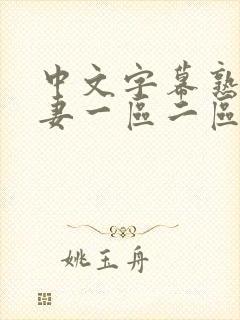 中文字幕熟
妻一區二區
姚玉舟